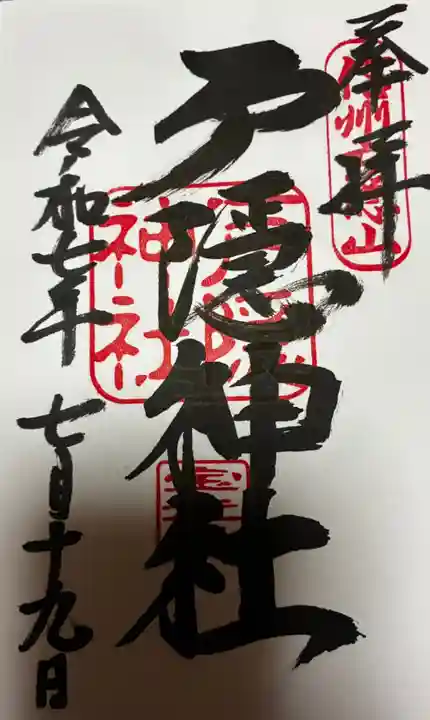 奉拝
信州戸隠山
戸隠神社
戸隠神社
令和七年 七月十九日